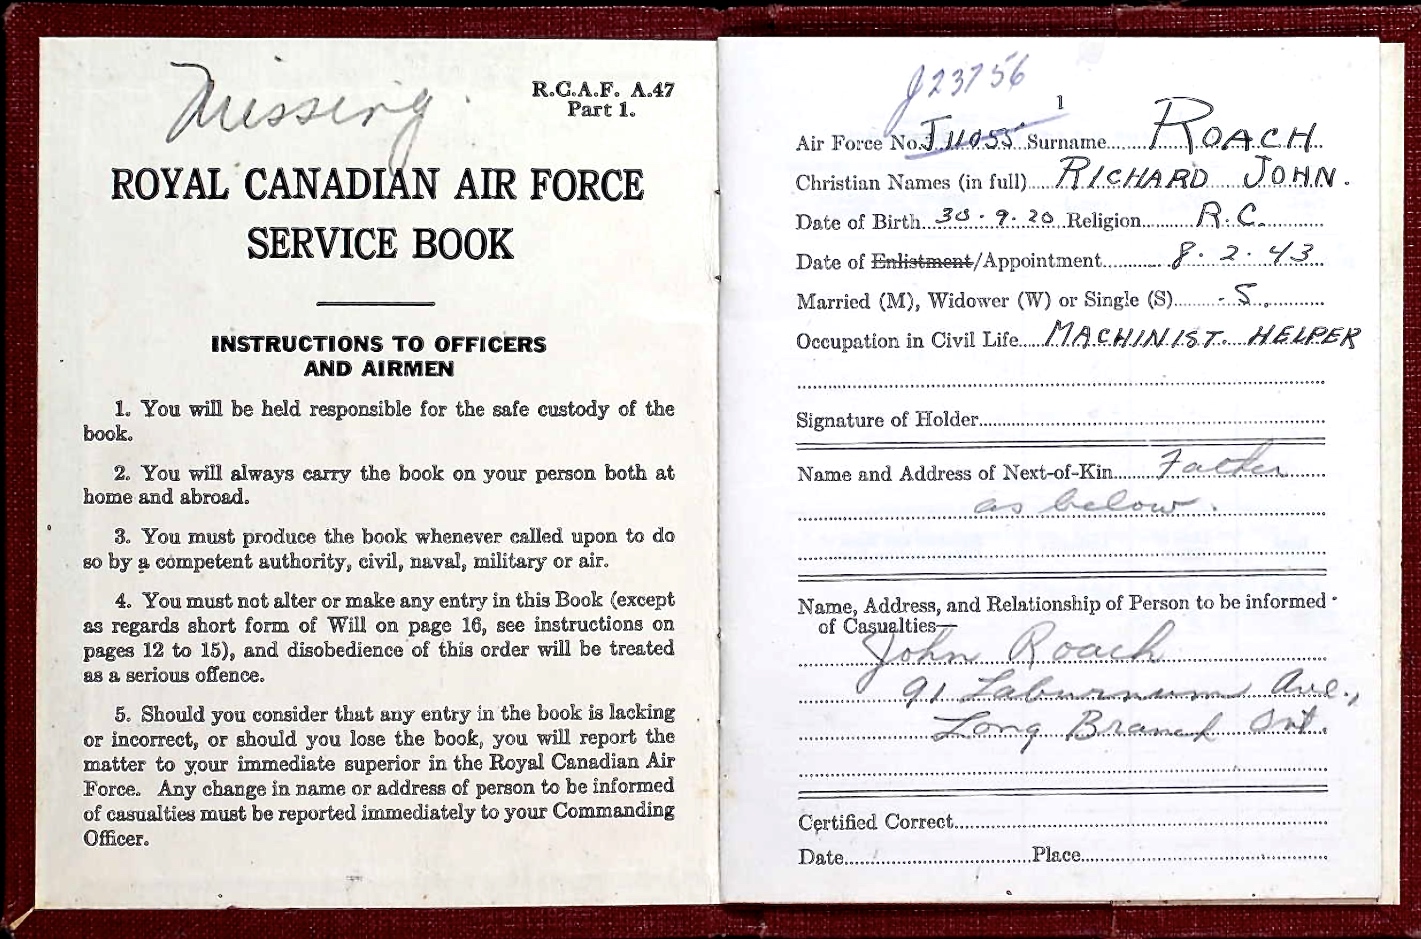 Missing.
R.C.A.F. A.47
Part 1.
ROYAL CANADIAN AIR FORCE
SERVICE BOOK
INSTRUCTIONS TO OFFICERS
AND AIRMEN
1. You will be held responsible for the safe custody of the
book.
2. You will always carry the book on your person both at
home and abroad.
3. You must produce the book whenever called upon to do
so by a competent authority, civil, naval, military or air.
4. You must not alter or make any entry in this Book (except
as regards short form of Will on page 16, see instructions on
pages 12 to 15), and disobedience of this order will be treated
as a serious offence.
5. Should you consider that any entry in the book is lacking
or incorrect, or should you lose the book, you will report the
matter to your immediate superior in the Royal Canadian Air
Force. Any change in name or address of person to be informed
of casualties must be reported immediately to your Commanding
Officer.
J23756
1
Air Force No. J11055 Surname ROACH
Christian Names (in full) RICHARD JOHN.
Date of Birth 30.9.20 Religion R.C.
Date of Enlistment/Appointment 8.2.43
Married (M), Widower (W) or Single (S) S.
Occupation in Civil Life MACHINIST HELPER
Signature of Holder
Name and Address of Next-of-Kin Father
as below.
Name, Address, and Relationship of Person to be informed
of Casualties—
John Roach
91 Laburnum Ave.,
Long Branch Ont.
Certified Correct
Date Place